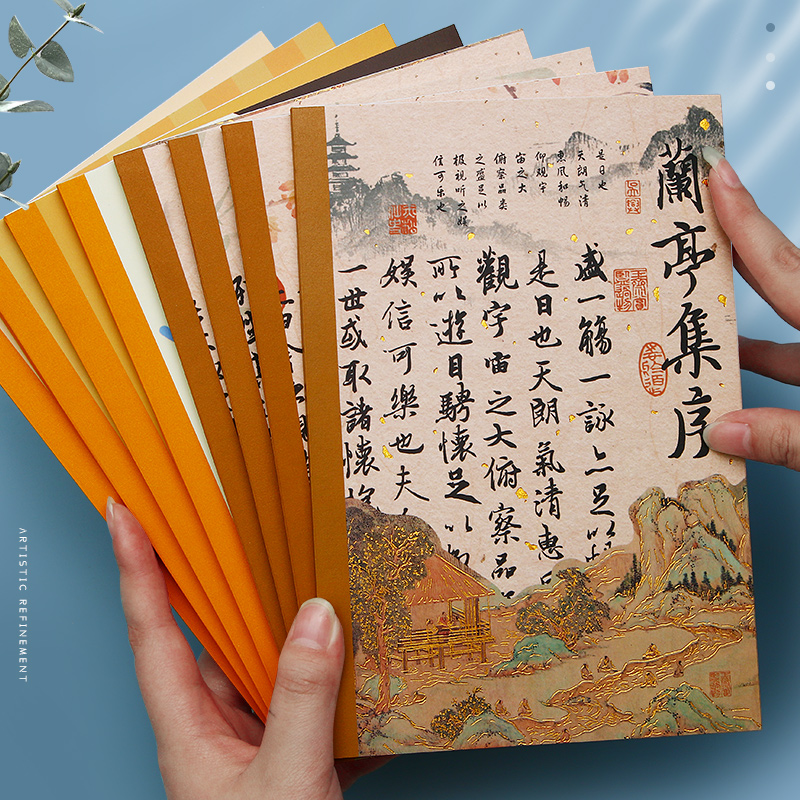 蘭亭集序
是日也
天朗气清
惠風和暢
仰观宇
宙之大
俯察品类
之盛足以
极视听之娱
信可乐也
盛一觴一詠亦足以
是日也天朗氣清惠
觀宇宙之大俯察品
所以遊目騁懷足以
娛信可樂也夫
一世或取諸懷
ARTISTIC REFINEMENT